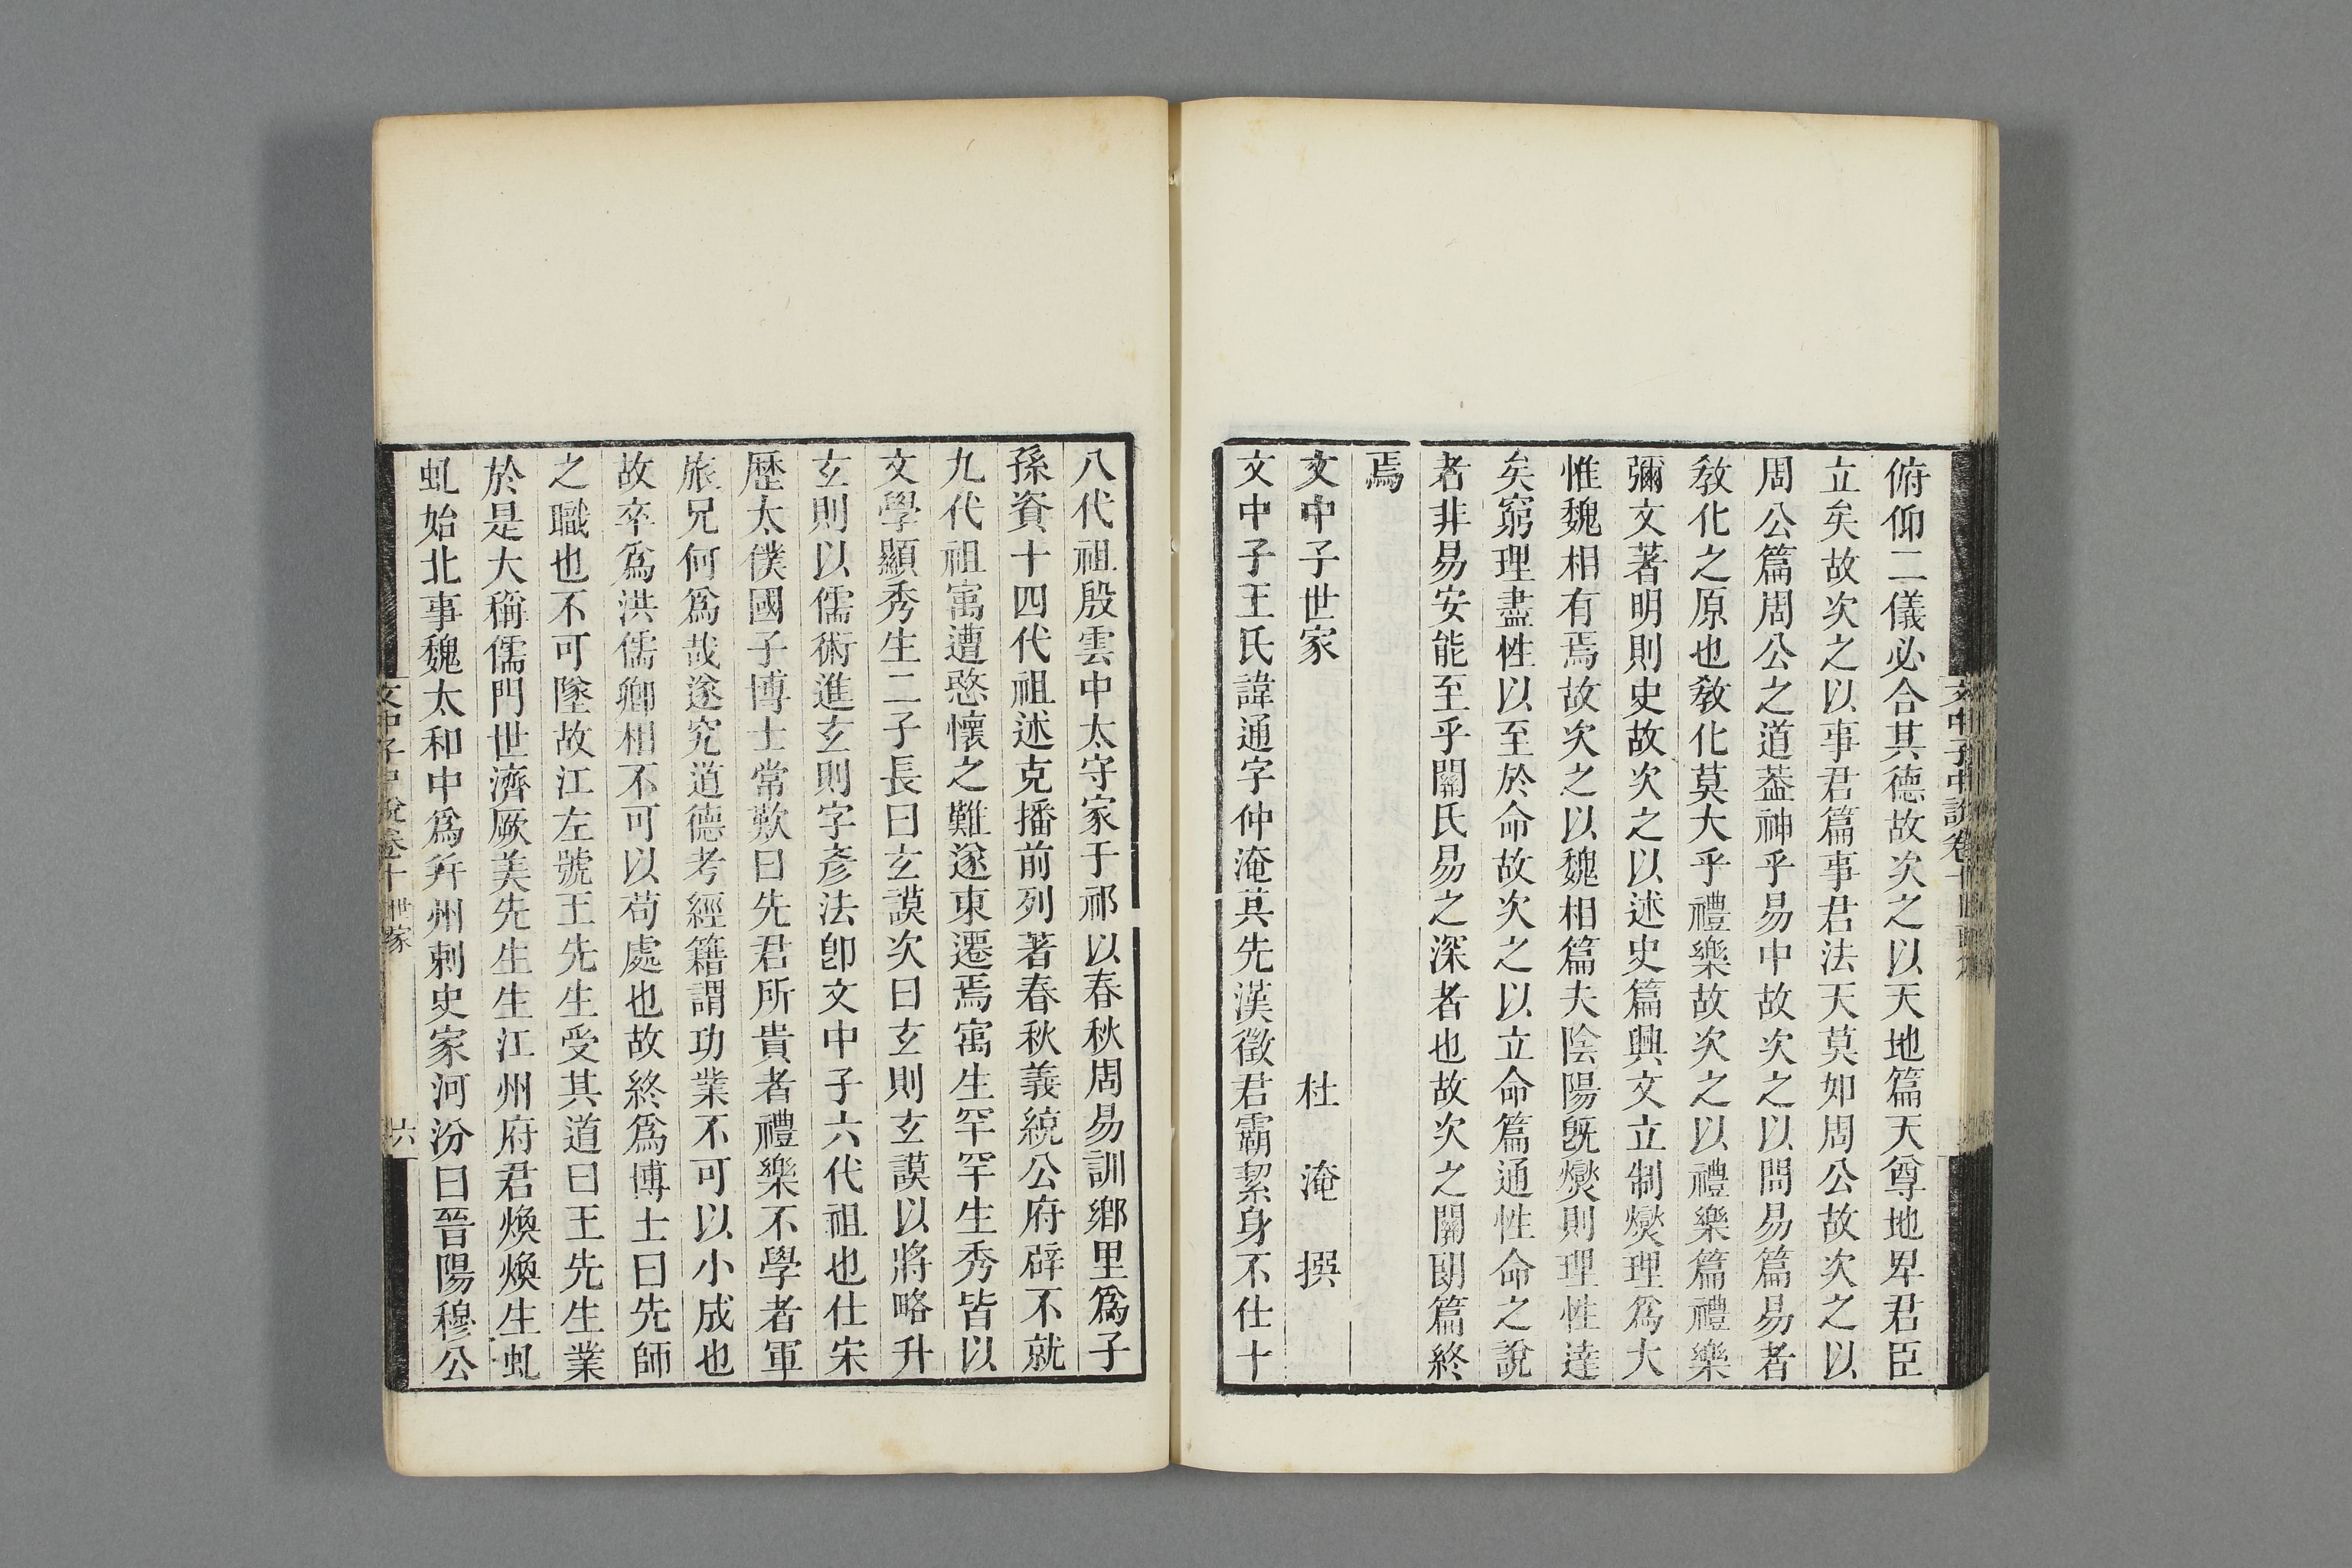 俯仰二儀必合其德故次之以天地篇天尊地卑君臣
立矣故次之以事君篇事君法天莫如周公故次之以
周公篇周公之道葢神乎易中故次之以問易篇易者
敎化之原也敎化莫大乎禮樂故次之以禮樂篇禮樂
彌文著明則史故次之以述史篇興文立制燮理爲大
惟魏相有焉故次之以魏相篇夫陰陽旣燮則理性達
矣窮理盡性以至於命故次之以立命篇通性命之說
者非易安能至乎關氏易之深者也故次之關朗篇終
焉
文中子世家 杜淹撰
文中子王氏諱通字仲淹其先漢徵君霸絜身不仕十
八代祖殷雲中太守家于祁以春秋周易訓鄉里爲子
孫資十四代祖述克播前列著春秋義統公府辟不就
九代祖寓遭愍懷之難遂東遷焉寓生罕罕生秀皆以
文學顯秀生二子長曰玄謨次曰玄則玄謨以將略升
玄則以儒術進玄則字彥法卽文中子六代祖也仕宋
歷太僕國子博士常歎曰先君所貴者禮樂不學者軍
旅兄何爲哉遂究道德考經籍謂功業不可以小成也
故卒爲洪儒卿相不可以苟處也故終爲博士曰先師
之職也不可墜故江左號王先生受其道曰王先生業
於是大稱儒門世濟厥美先生生江州府君煥煥生虬
虬始北事魏太和中爲幷州刺史家河汾曰晉陽穆公
文中子中說卷十 世家 六